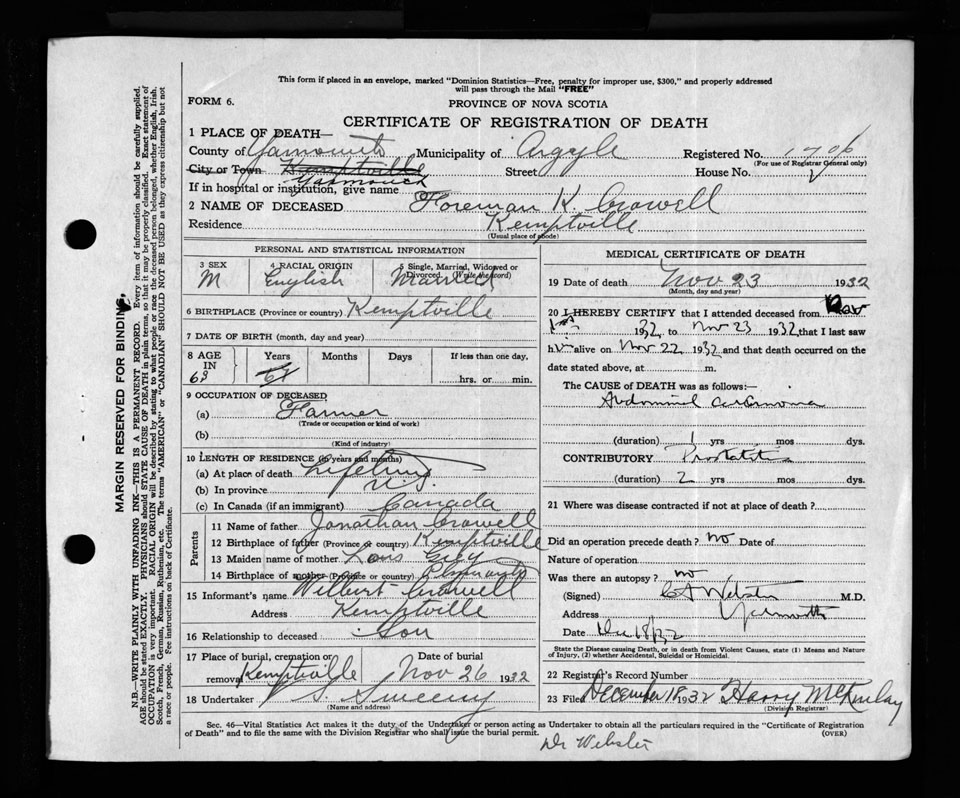 This form if placed in an envelope, marked "Dominion Statistics—Free, penalty for improper use, $300," and properly addressed
will pass through the Mail "FREE"
FORM 6.
PROVINCE OF NOVA SCOTIA
CERTIFICATE OF REGISTRATION OF DEATH
1 PLACE OF DEATH—
County of Yarmouth Municipality of Argyle Registered No. 1706
(For use of Registrar General only)
City or Town Kemptville Street House No.
Yarmouth
If in hospital or institution, give name
2 NAME OF DECEASED Foreman K. Crowell
Residence Kemptville
(Usual place of abode)
PERSONAL AND STATISTICAL INFORMATION
3 SEX M 4 RACIAL ORIGIN English 5 Single, Married, Widowed or Divorced (Write the word) Married
6 BIRTHPLACE (Province or country) Kemptville
7 DATE OF BIRTH (month, day and year)
8 AGE IN Years Months Days If less than one day,
68 hrs. or min.
9 OCCUPATION OF DECEASED
(a) Farmer
(Trade or occupation or kind of work)
(b)
(Kind of industry)
10 LENGTH OF RESIDENCE (in years and months)
(a) At place of death Lifetime
(b) In province
(c) In Canada (if an immigrant) Canada
Parents
11 Name of father Jonathan Crowell
12 Birthplace of father (Province or country) Kemptville
13 Maiden name of mother Gray
14 Birthplace of mother (Province or country)
15 Informant's name Wilbert Crowell
Address Kemptville
16 Relationship to deceased Son
17 Place of burial, cremation or removal Kemptville Date of burial Nov 26 1932
18 Undertaker S. Sweeny
(Name and address)
MEDICAL CERTIFICATE OF DEATH
19 Date of death Nov 23 1932
(Month, day and year)
20 I HEREBY CERTIFY that I attended deceased from Nov
1932 to Nov 23 1932 that I last saw
him alive on Nov 22 1932 and that death occurred on the
date stated above, at m.
The CAUSE of DEATH was as follows:—
Abdominal carcinoma
(duration) 1 yrs mos dys.
CONTRIBUTORY Prostatitis
(duration) 2 yrs mos dys.
21 Where was disease contracted if not at place of death?
Did an operation precede death? no Date of
Nature of operation
Was there an autopsy? no
(Signed) Webster M.D.
Address Yarmouth
Date Dec 18/32
State the Disease causing Death, or in death from Violent Causes, state (1) Means and Nature
of Injury, (2) whether Accidental, Suicidal or Homicidal.
22 Registrar's Record Number
23 Filed December 18 1932 Harry McKinlay
(Division Registrar)
Sec. 46—Vital Statistics Act makes it the duty of the Undertaker or person acting as Undertaker to obtain all the particulars required in the "Certificate of Registration
of Death" and to file the same with the Division Registrar who shall issue the burial permit.
(OVER)
Dr Webster
MARGIN RESERVED FOR BINDING.
N.B.—WRITE PLAINLY WITH UNFADING INK—THIS IS A PERMANENT RECORD. Every item of information should be carefully supplied.
AGE should be stated EXACTLY. PHYSICIANS should STATE CAUSE OF DEATH in plain terms, so that it may be properly classified. Exact statement of
OCCUPATION is very important. RACIAL ORIGIN will be described by stating to what people or race the deceased person belonged, whether English, Irish,
Scotch, French, German, Russian, Ruthenian, etc. The terms "AMERICAN" or "CANADIAN" SHOULD NOT BE USED as they express citizenship but not
a race or people. See instructions on back of Certificate.